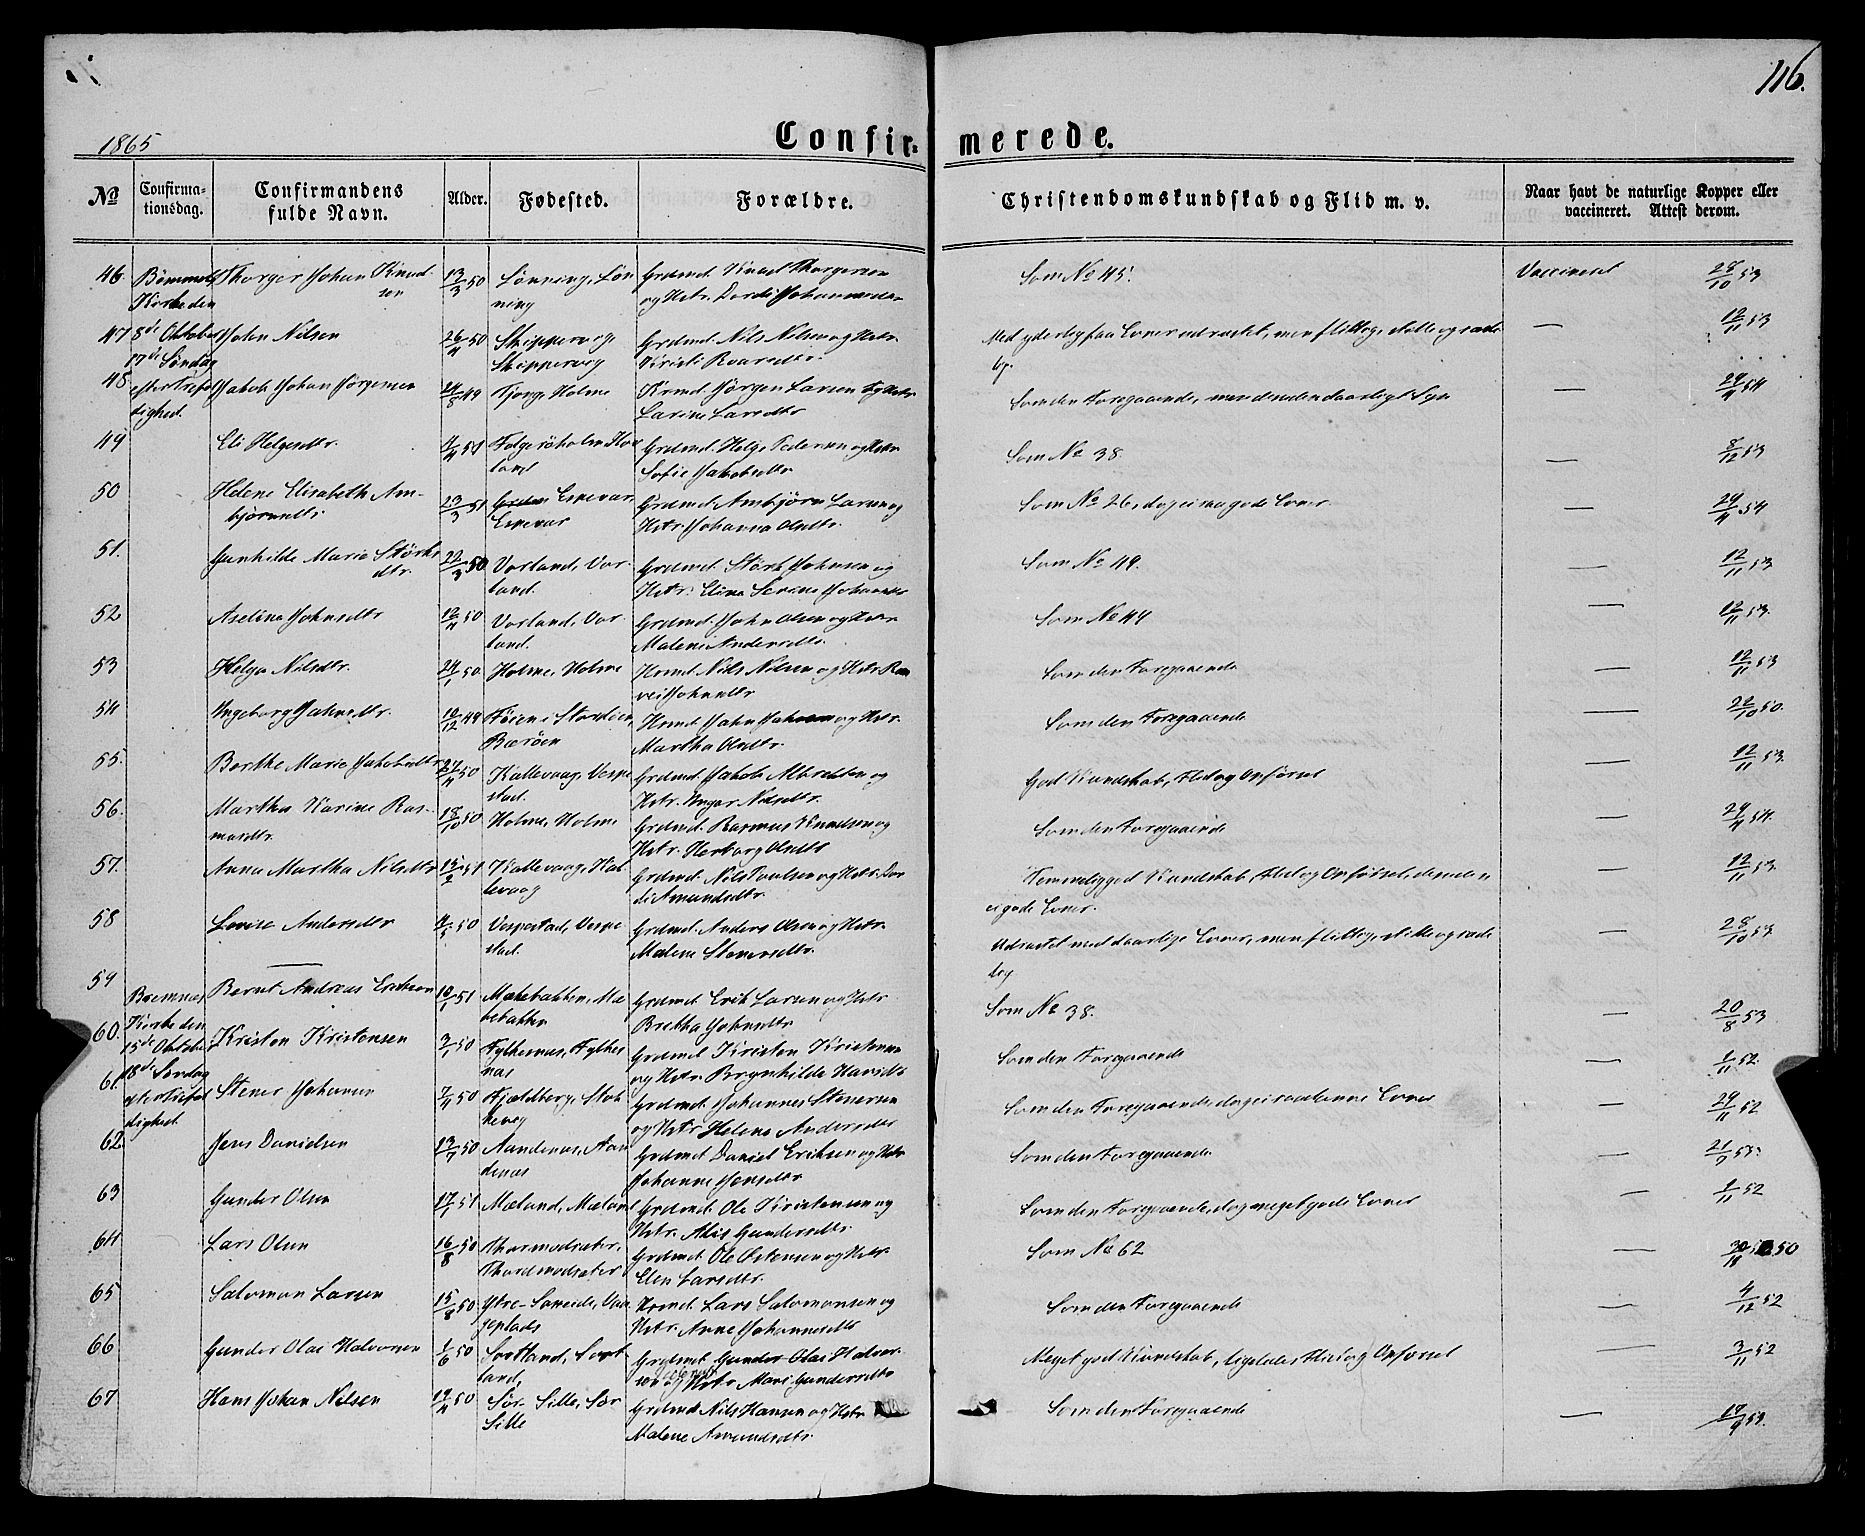 116.
1865
Confirmerede.
No
Confirmationsdag.
Confirmandens fulde Navn.
Alder.
Fødested.
Forældre.
Christendomskundskab og Flid m. v.
Naar havt de naturlige Kopper eller vaccineret. Attest derom.
46 Bømmels Kirke den Thorger Johan Knudsen 13/3 50 Lønning, Lønning Grdmd. Knud Thorgersen og Hstr. Dordi Johannesdtr Som No 45. Vaccineret 28/10 53
47 8de Oktober 17de Søndag John Nilsen 26/11 50 Skippervig, Skippervig Grdmd. Nils Nilsen og Hstr. Kristi Roaresdtr. — 12/11 53
48. efter Trefoldighed. Jakob Johan Jørgensen 24/8 49 Holme Jørgen Larsen og Hstr Larine Larsdtr Som den Foregaaende, men desuden daarligt Syn — 29/4 54
49 Eli Helgesdtr. 4/4 51 Grdmd. Helge Pedersen og Hstr Sofie Jakobsdtr Som No 38. — 8/12 53
50 Helene Elisabeth Ambjørnsdtr 23/3 51 Espevær, Espevær Grdmd. Ambjørn Larsen og Hstr. Johanna Olsdtr. Som No 26, dog ei saa gode Evner. — 29/4 54
51. Gunhilde Marie Størksdtr. 22/3 50 Vorland, Vorland. Grdmd. Størk Johnsen og Hstr. Elina Serine Som No 49. — 12/11 53
52 Aselina Johnsdtr 12/11 50 Vorland, Vorland. Grdmd. John Olsen og Hstr Malene Andersdtr. Som No 44 — 12/11 53.
53 Helga Nilsdtr. 24/1 50 Holme, Holme Nils Nilsen og Hstr. Ranvei Johnsdtr Som den Foregaaende — 12/11 53
54 Ingeborg Johnsdtr. 10/12 49 Bærøen John Johnsen og Hstr. Martha Olsdtr. Som den Foregaaende — 22/10 50.
55. Berthe Marie Jakobsdtr 27/4 50 Kallevaag, Vespestad. Grdmd. Jakob Albretsen og Hstr. Inger Nilsdtr. God Kundskab, Flid og Opførsel — 12/11 53.
56. Martha Karine Rasmusdtr. 18/10 50 Holme, Holme Grdmd. Rasmus Knudsen og Hstr. Herborg Olsdtr Som den Foregaaende — 29/4 54.
57. Anna Martha Nilsdtr 15/2 51 Kallevaag, Kallevaag Grdmd. Nils Poulsen og Hstr. Dordi Amundsdtr. Temmelig god Kundskab, Flid og Opførsel, desuden ei gode Evner. — 12/11 53.
58 Lovise Andersdtr 4/5 50 Vespestad, Vespestad. Grdmd. Anders Olsen og Hstr. Malene Stenersdtr. Udrustet med daarlige Evner, men flittig, stille og sædelig — 28/10 53.
59 Bremnæs Bernt Andreas Eriksen 10/1 51 Mækebakken, Mækebakken Grdmd. Erik Larsen og Hstr. Bretha Johnsdtr Som No 38. — 20/8 53
60. Kirke den 15de Oktober Kristen Kristensen 3/1 50 Fylkesnæs, Fylkesnæs Grdmd. Kristen Kristensen og Hstr. Brynhilde Som den Foregaaende — 1/11 52.
61. 18de Søndag efter Trefoldighed Stener Johannesen 7/4 50 Fjeldberg, Stokkevog Grdmd. Johannes Stenersen og Hstr Helene Andersdtr Som den Foregaaende, dog ei saadanne Evner — 29/11 52
62. Jens Danielsen 50 Aandenæs, Aandenæs Grdmd Daniel Eriksen og Hstr Johanne Jensdtr. Som den Foregaaende — 21/7
63 Gunder Olsen 17/1 51 Mæland, Mæland Grdmd. Ole Kristensen og Hstr. Alis Gundersdtr. Som den Foregaaende, dog meget gode Evner — 2/11 52
64 Lars Olsen 16/8 50 Thormodsæter, Thormodsæter Grdmd. Ole Østensen og Hstr Elen Larsdtr. Som No 62 — 50
65 Salomon Larsen 15/8 50 Ytre-Lars Salomonsen og Hstr. Anne Johannesdtr Som den Foregaaende — 4/12 52
66 Gunder Olai Halvorsen 1/6 50 Sortland, Sortland, Grdmd. Gunder Olai Halvorsen og Hstr Mari Gundersdtr Meget god Kundskab, ligeledes Flid og Opførsel — 3/11 52
67 Hans Johan Nilsen 50 Sør-Sille, Sør-Sille Grdmd. Nils Hansen og Hstr Malene Amundsdtr. Som den Foregaaende — 19/9